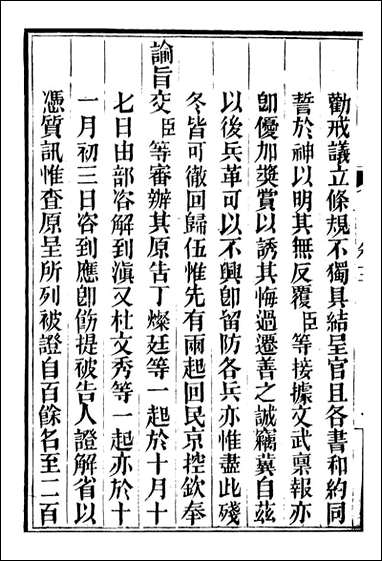 勸戒議立條規不獨具結呈官且各書和約同
誓於神以明其無反覆臣等接據文武禀報亦
卽優加奬賞以誘其悔過遷善之誠竊冀自茲
以後兵革可以不興卽留防各兵亦惟盡此殘
冬皆可徹回歸伍惟先有兩起回民京控欽奉
諭旨交臣等審辦其原告丁燦廷等一起於十月十
七日由部咨解到滇又杜文秀等一起亦於十
一月初三日咨到應卽飭提被告人證解省以
憑質訊惟查原呈所列被證自百餘名至二百